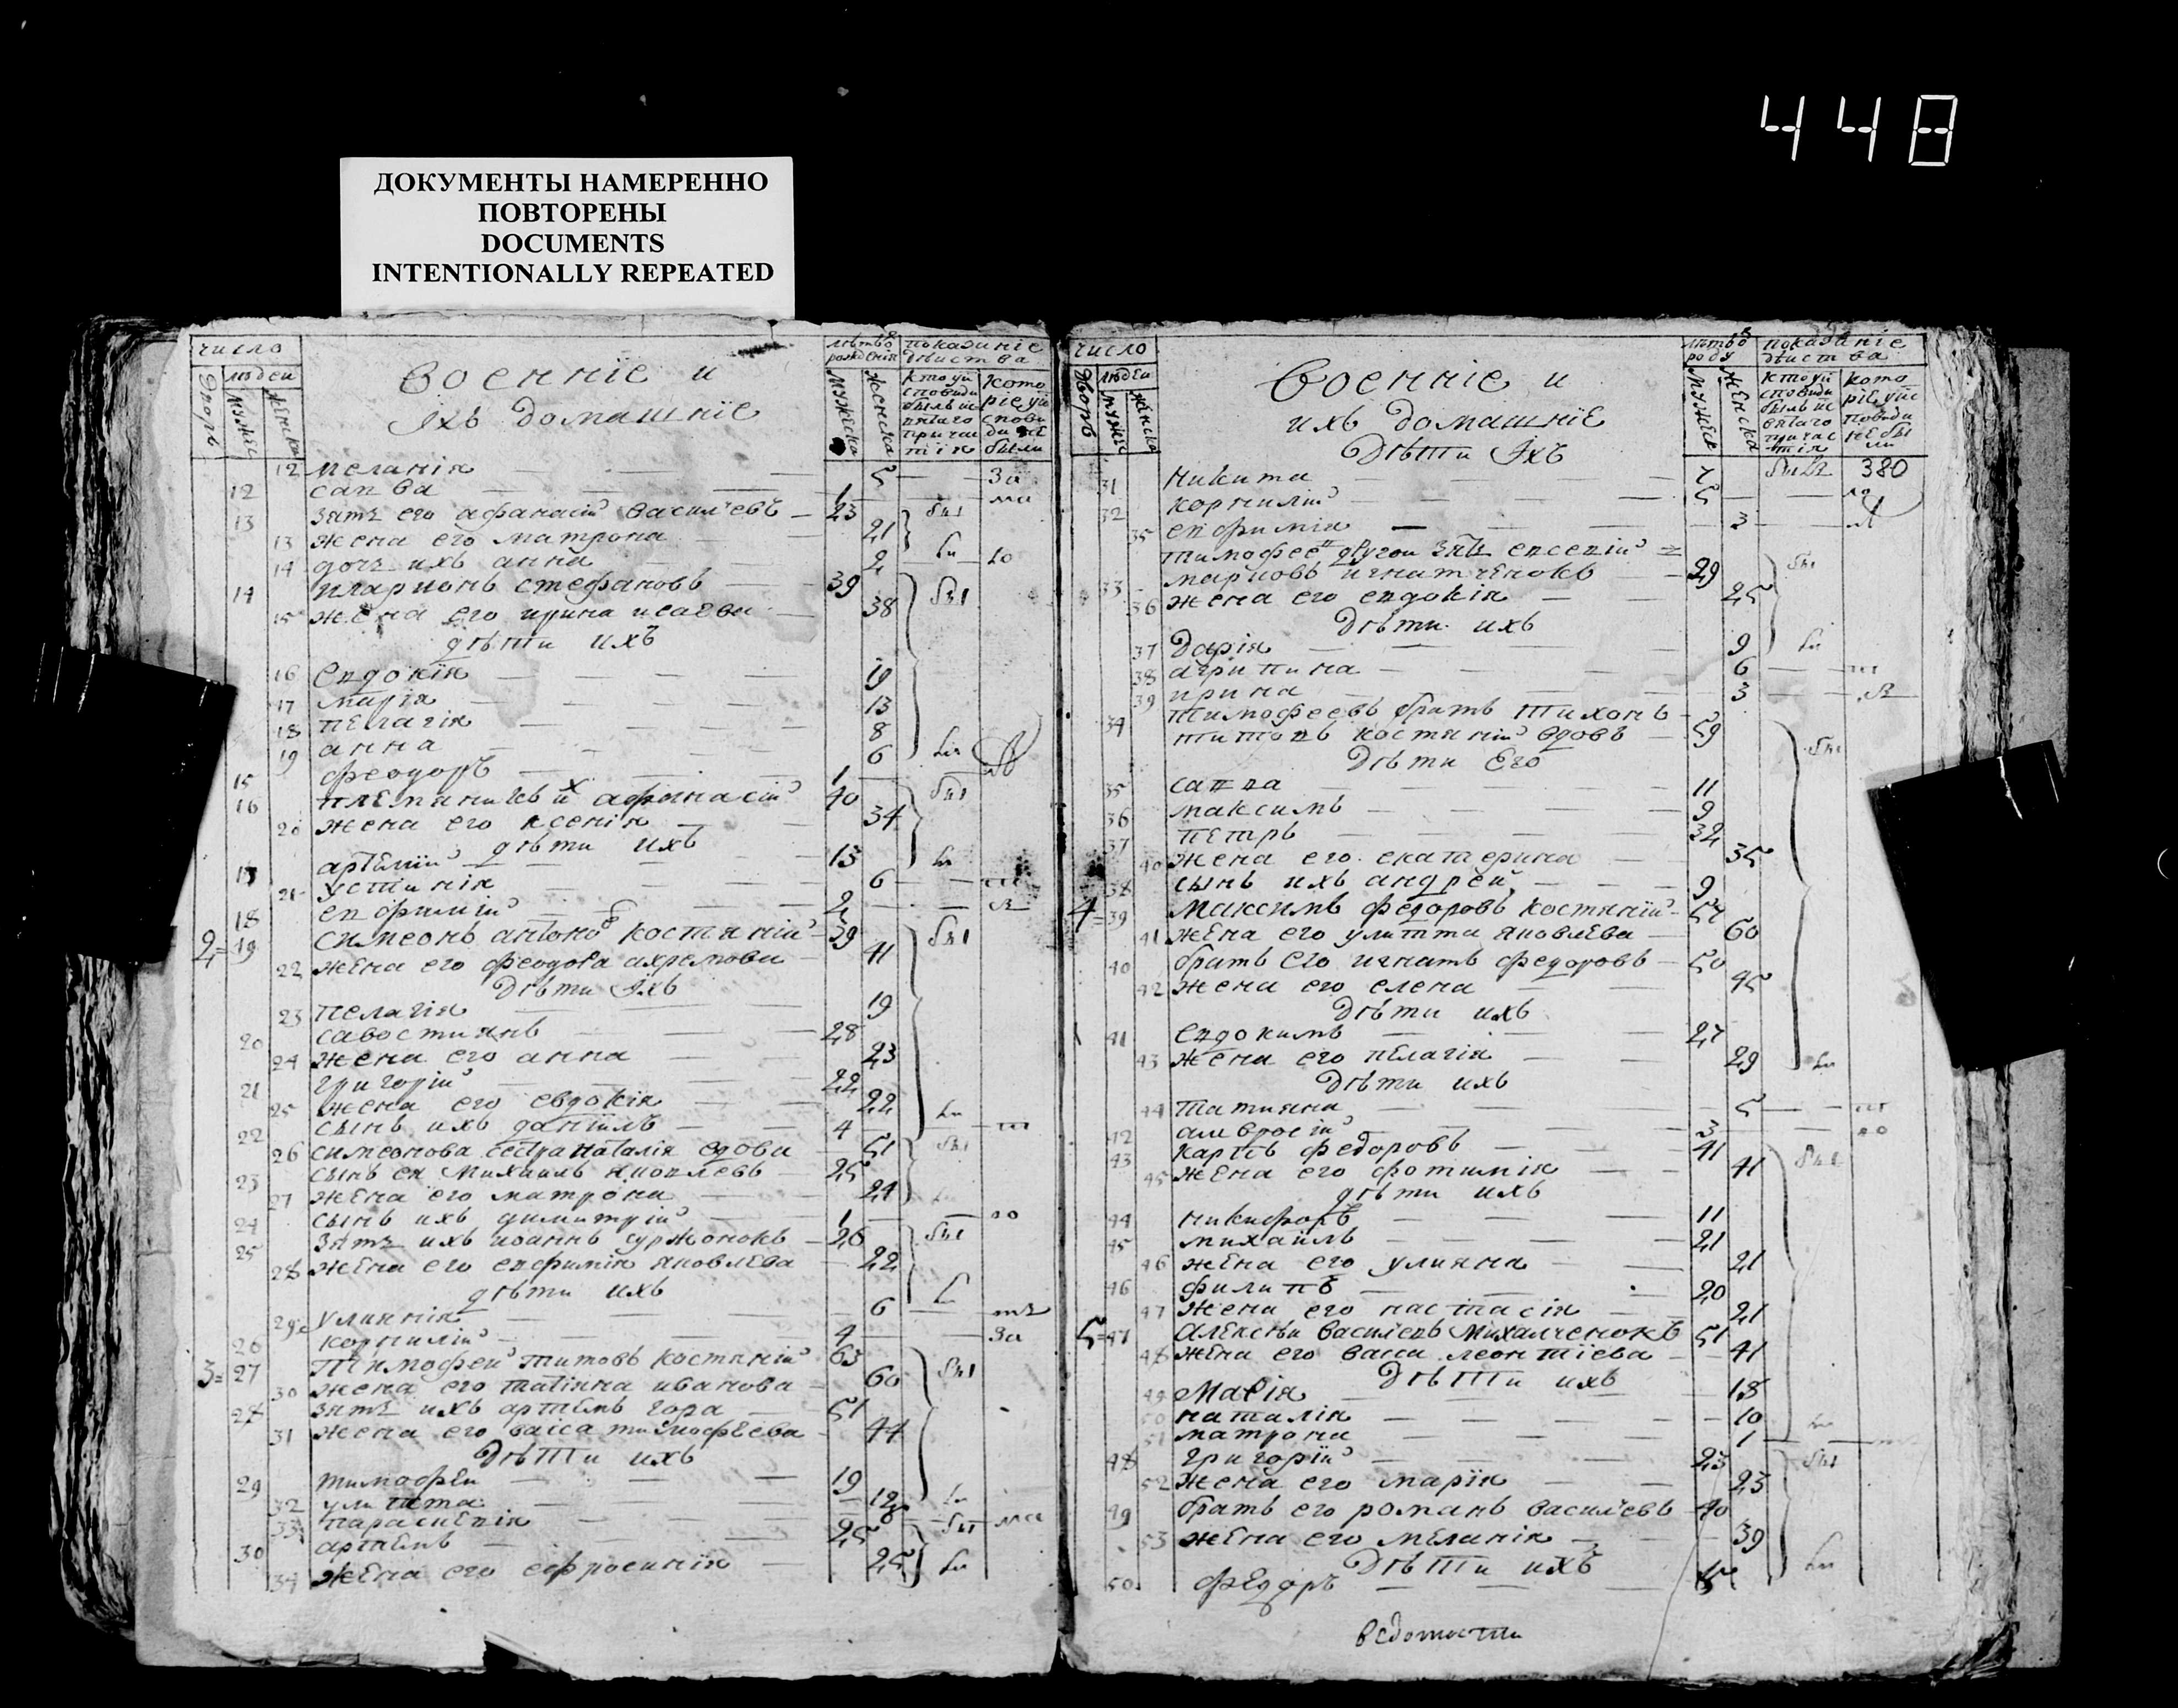 448
ДОКУМЕНТЫ НАМЕРЕННО
ПОВТОРЕНЫ
DOCUMENTS
INTENTIONALLY REPEATED
число
людеи
военніе и
Іхъ домашніе
12 меланія 5
12 савва 1
13 зять его афанасій василевъ 23
13 жена его матрона 21
14 дочь ихъ анна 2
14 иларионъ стефановъ 39
15 жена его ирина исаева 38
дѣти ихъ
16 Евдокія 19
17 марія 13
18 пелагія 8
19 анна 6
15 феодоръ 1
16 племяникъ ихъ афанасій 40
20 жена его ксенія 34
дѣти ихъ
артемій 13
21 устинія 6
18 евфимій 2
2 19 симеонъ антоно костяній 39
22 жена его феодора ахремова 41
Дѣти Іхъ
23 пелагія 19
20 савостиянъ 28
24 жена его анна 23
21 григорій 22
25 жена его евдокія 22
22 сынъ ихъ даніилъ 4
26 симеонова сестра наталія вдова 51
23 сынъ ея михаилъ яковлевъ 25
27 жена его матрона 21
24 сынъ ихъ димитрій 1
25 зять ихъ иоаннъ суржонокъ 26
28 жена его евфимія яковлева 22
дѣти ихъ
29 улиянія 6
26 корнилій 4
3 27 Тимофеи титовъ костяній 63
30 жена его татіяна иванова 60
28 зять ихъ артемъ гора 51
31 жена его васса тимофѣева 44
Дѣти ихъ
29 тимофеи 19
32 улитта
33 параскевія
30 артемъ 25
34 жена его ефросинія 25
число
людеи
военніе и
ихъ домашніе
Дѣти Іхъ
380
31 никита
32 корнилій 5
35 евфимія 3
тимофеевъ другои зять евсевій
33 марковъ игнатченокъ 29
36 жена его евдокія 25
Дѣти ихъ
37 Дарія 9
38 агрипина 6
39 ирина 3
34 тимофеевъ братъ тихонъ
титовъ костяній вдовъ 59
Дѣти Его
35 савва 11
36 максимъ 9
37 петръ 32
40 жена его екатерина 35
38 сынъ ихъ андреи 9
4 39 максимъ федоровъ костяній
41 жена его улитта яковлева 60
40 братъ его игнатъ федоровъ 50
42 жена его елена 45
Дѣти ихъ
41 Евдокимъ 27
43 жена его пелагія 29
Дѣти ихъ
44 татияна 5
42 амвросій 3
43 карпъ федоровъ 41
45 жена его фотинія 41
дѣти ихъ
44 никифоръ 11
45 михаилъ 21
46 жена его улияна 21
46 филипъ 20
47 жена его настасія 21
5 47 Алексѣи василевъ михалченокъ 51
48 жена его васса леонтіева 41
Дѣти ихъ
49 Марія 18
50 наталія 10
51 матрона 1
48 григорій 23
52 жена его марія 23
49 братъ его романъ василевъ 40
53 жена его меланія 39
Дѣти ихъ
50 федоръ
ведомости